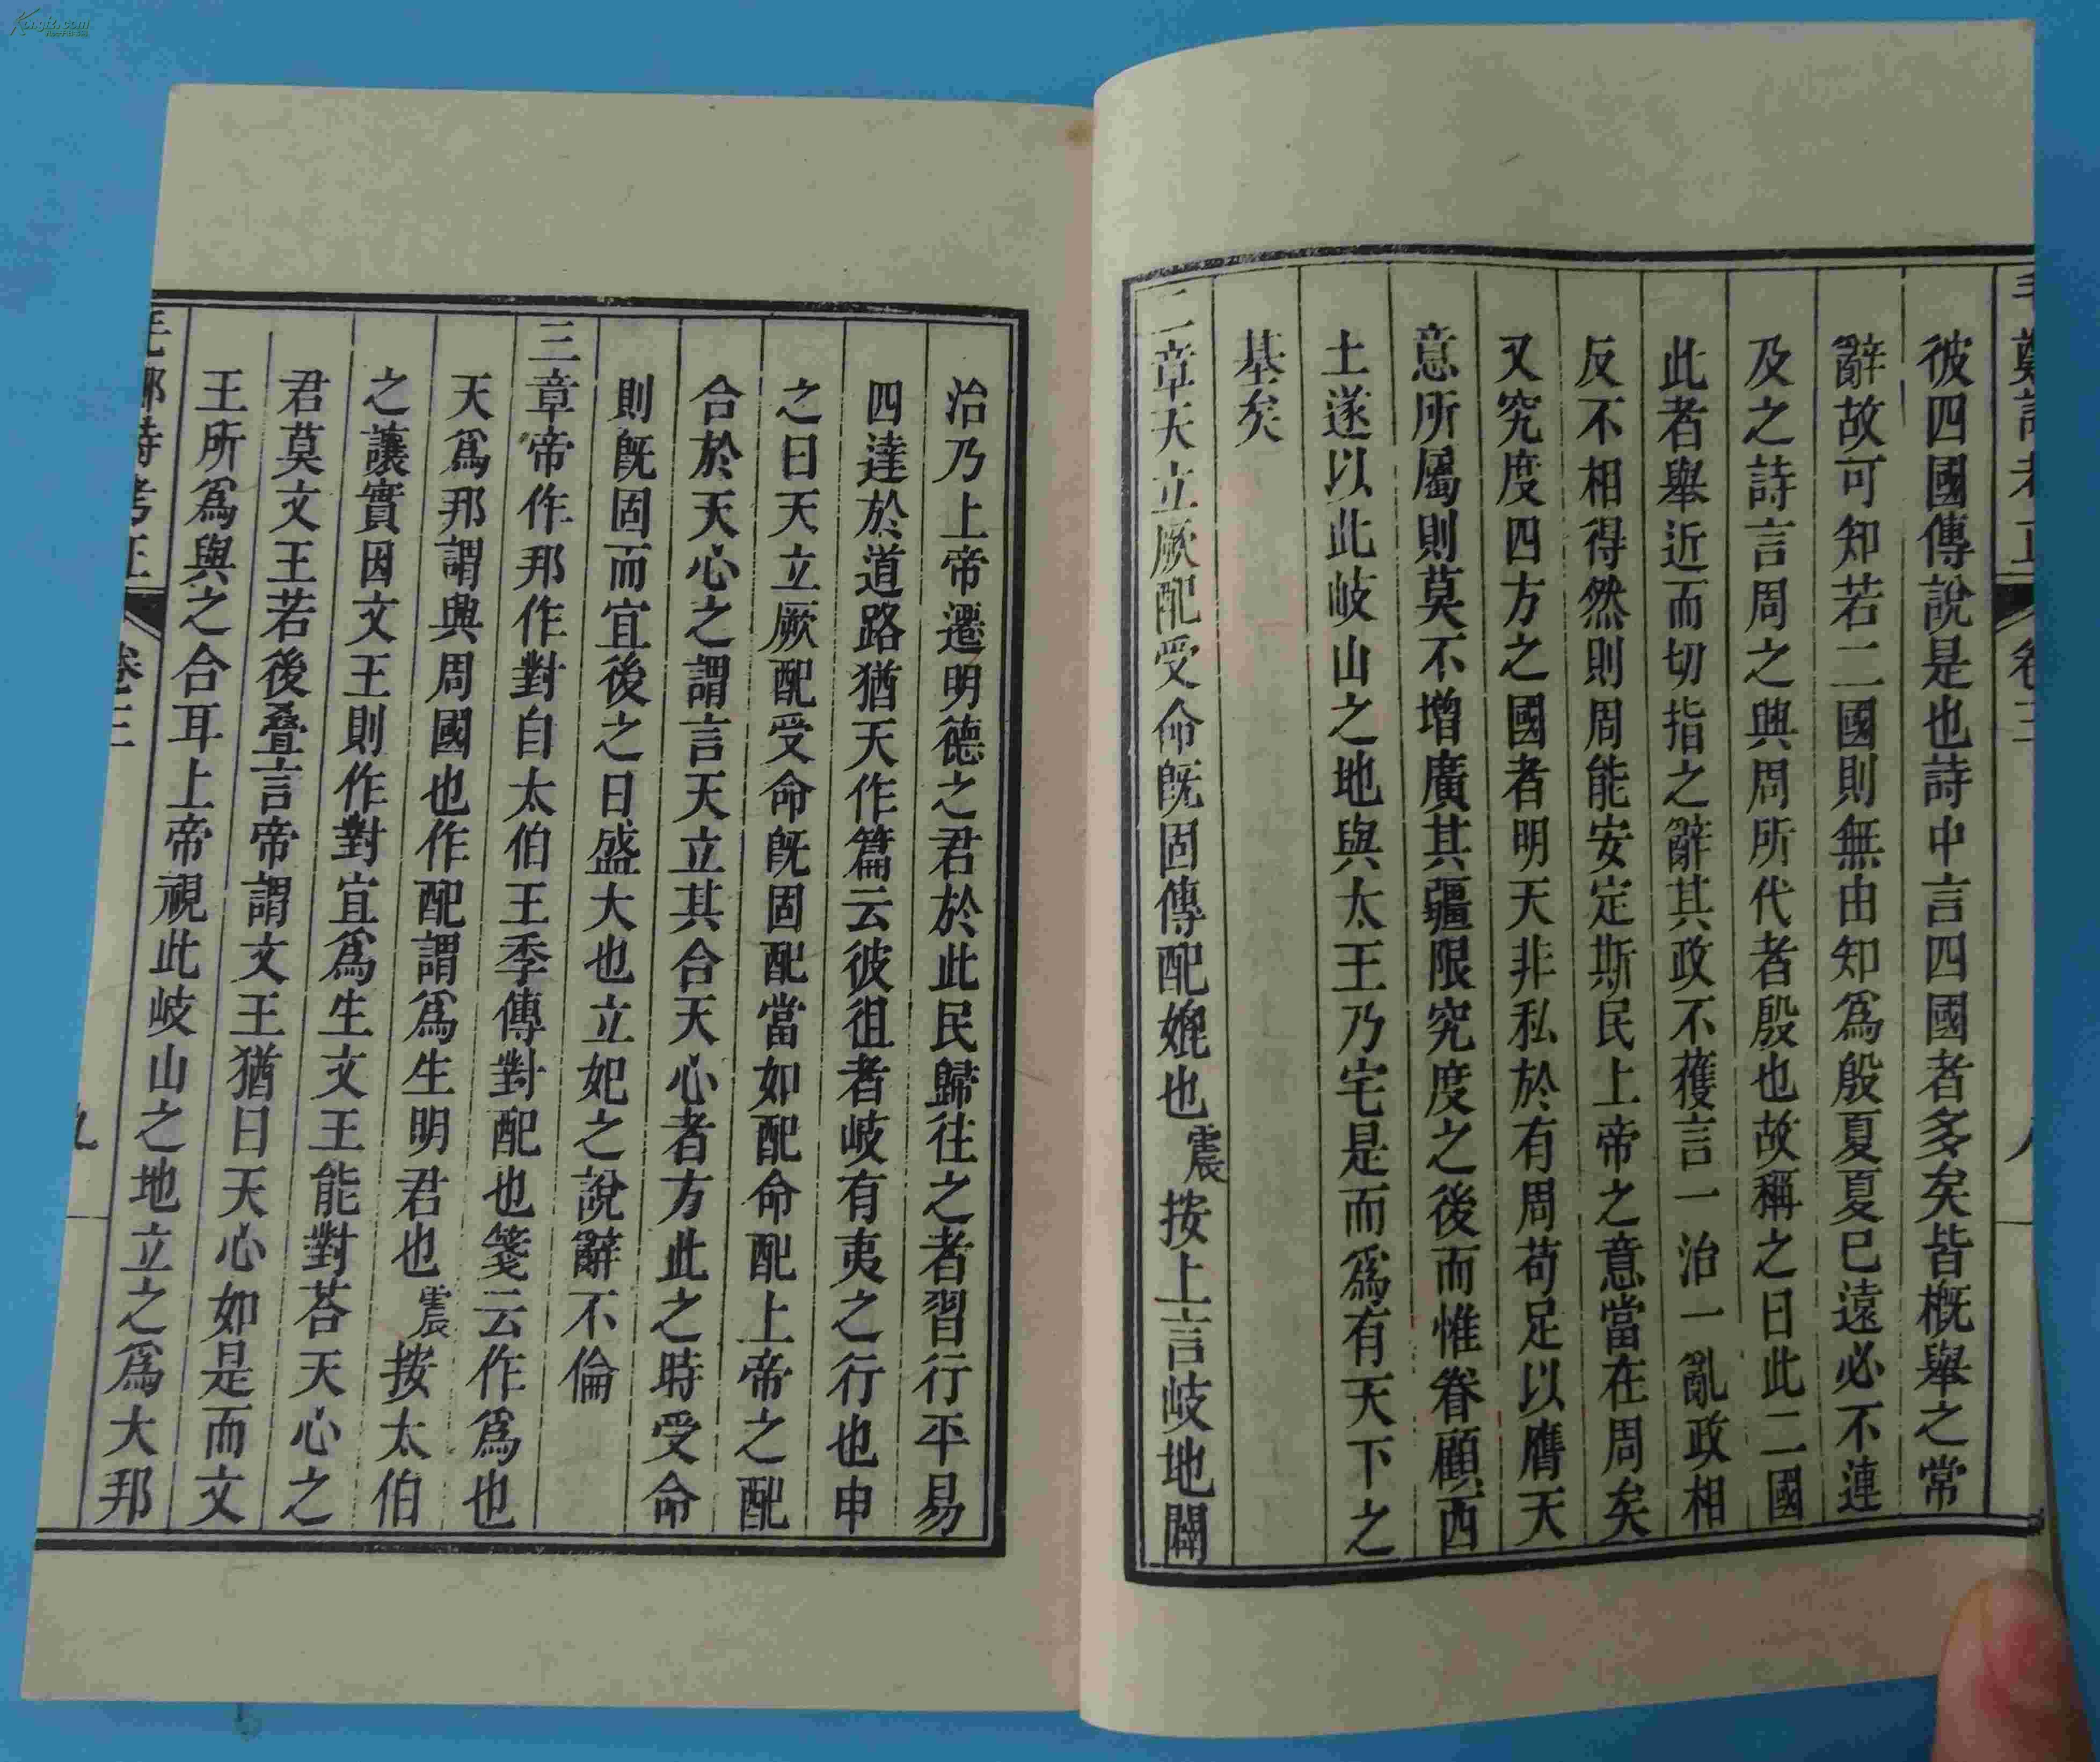 毛鄭詩考正 卷三 八
彼四國傳說是也詩中言四國者多矣皆概舉之常
辭故可知若二國則無由知爲殷夏夏巳遠必不連
及之詩言周之興周所代者殷也故稱之曰此二國
此者舉近而切指之辭其政不獲言一治一亂政相
反不相得然則周能安定斯民上帝之意當在周矣
又究度四方之國者明天非私於有周苟足以膺天
意所屬則莫不增廣其疆限究度之後而惟眷顧西
土遂以此岐山之地與太王乃宅是而爲有天下之
基矣
二章天立厥配受命旣固傳配媲也震按上言岐地闢
治乃上帝遷明德之君於此民歸往之者習行平易
四達於道路猶天作篇云彼徂者岐有夷之行也申
之曰天立厥配受命旣固配當如配命配上帝之配
合於天心之謂言天立其合天心者方此之時受命
則旣固而宜後之日盛大也立妃之說辭不倫
三章帝作邦作對自太伯王季傳對配也箋云作爲也
天爲邦謂興周國也作配謂爲生明君也震按太伯
之讓實因文王則作對宜爲生文王能對荅天心之
君莫文王若後疊言帝謂文王猶曰天心如是而文
王所爲與之合耳上帝視此岐山之地立之爲大邦
毛鄭詩考正 卷三 九
Kongfz.com